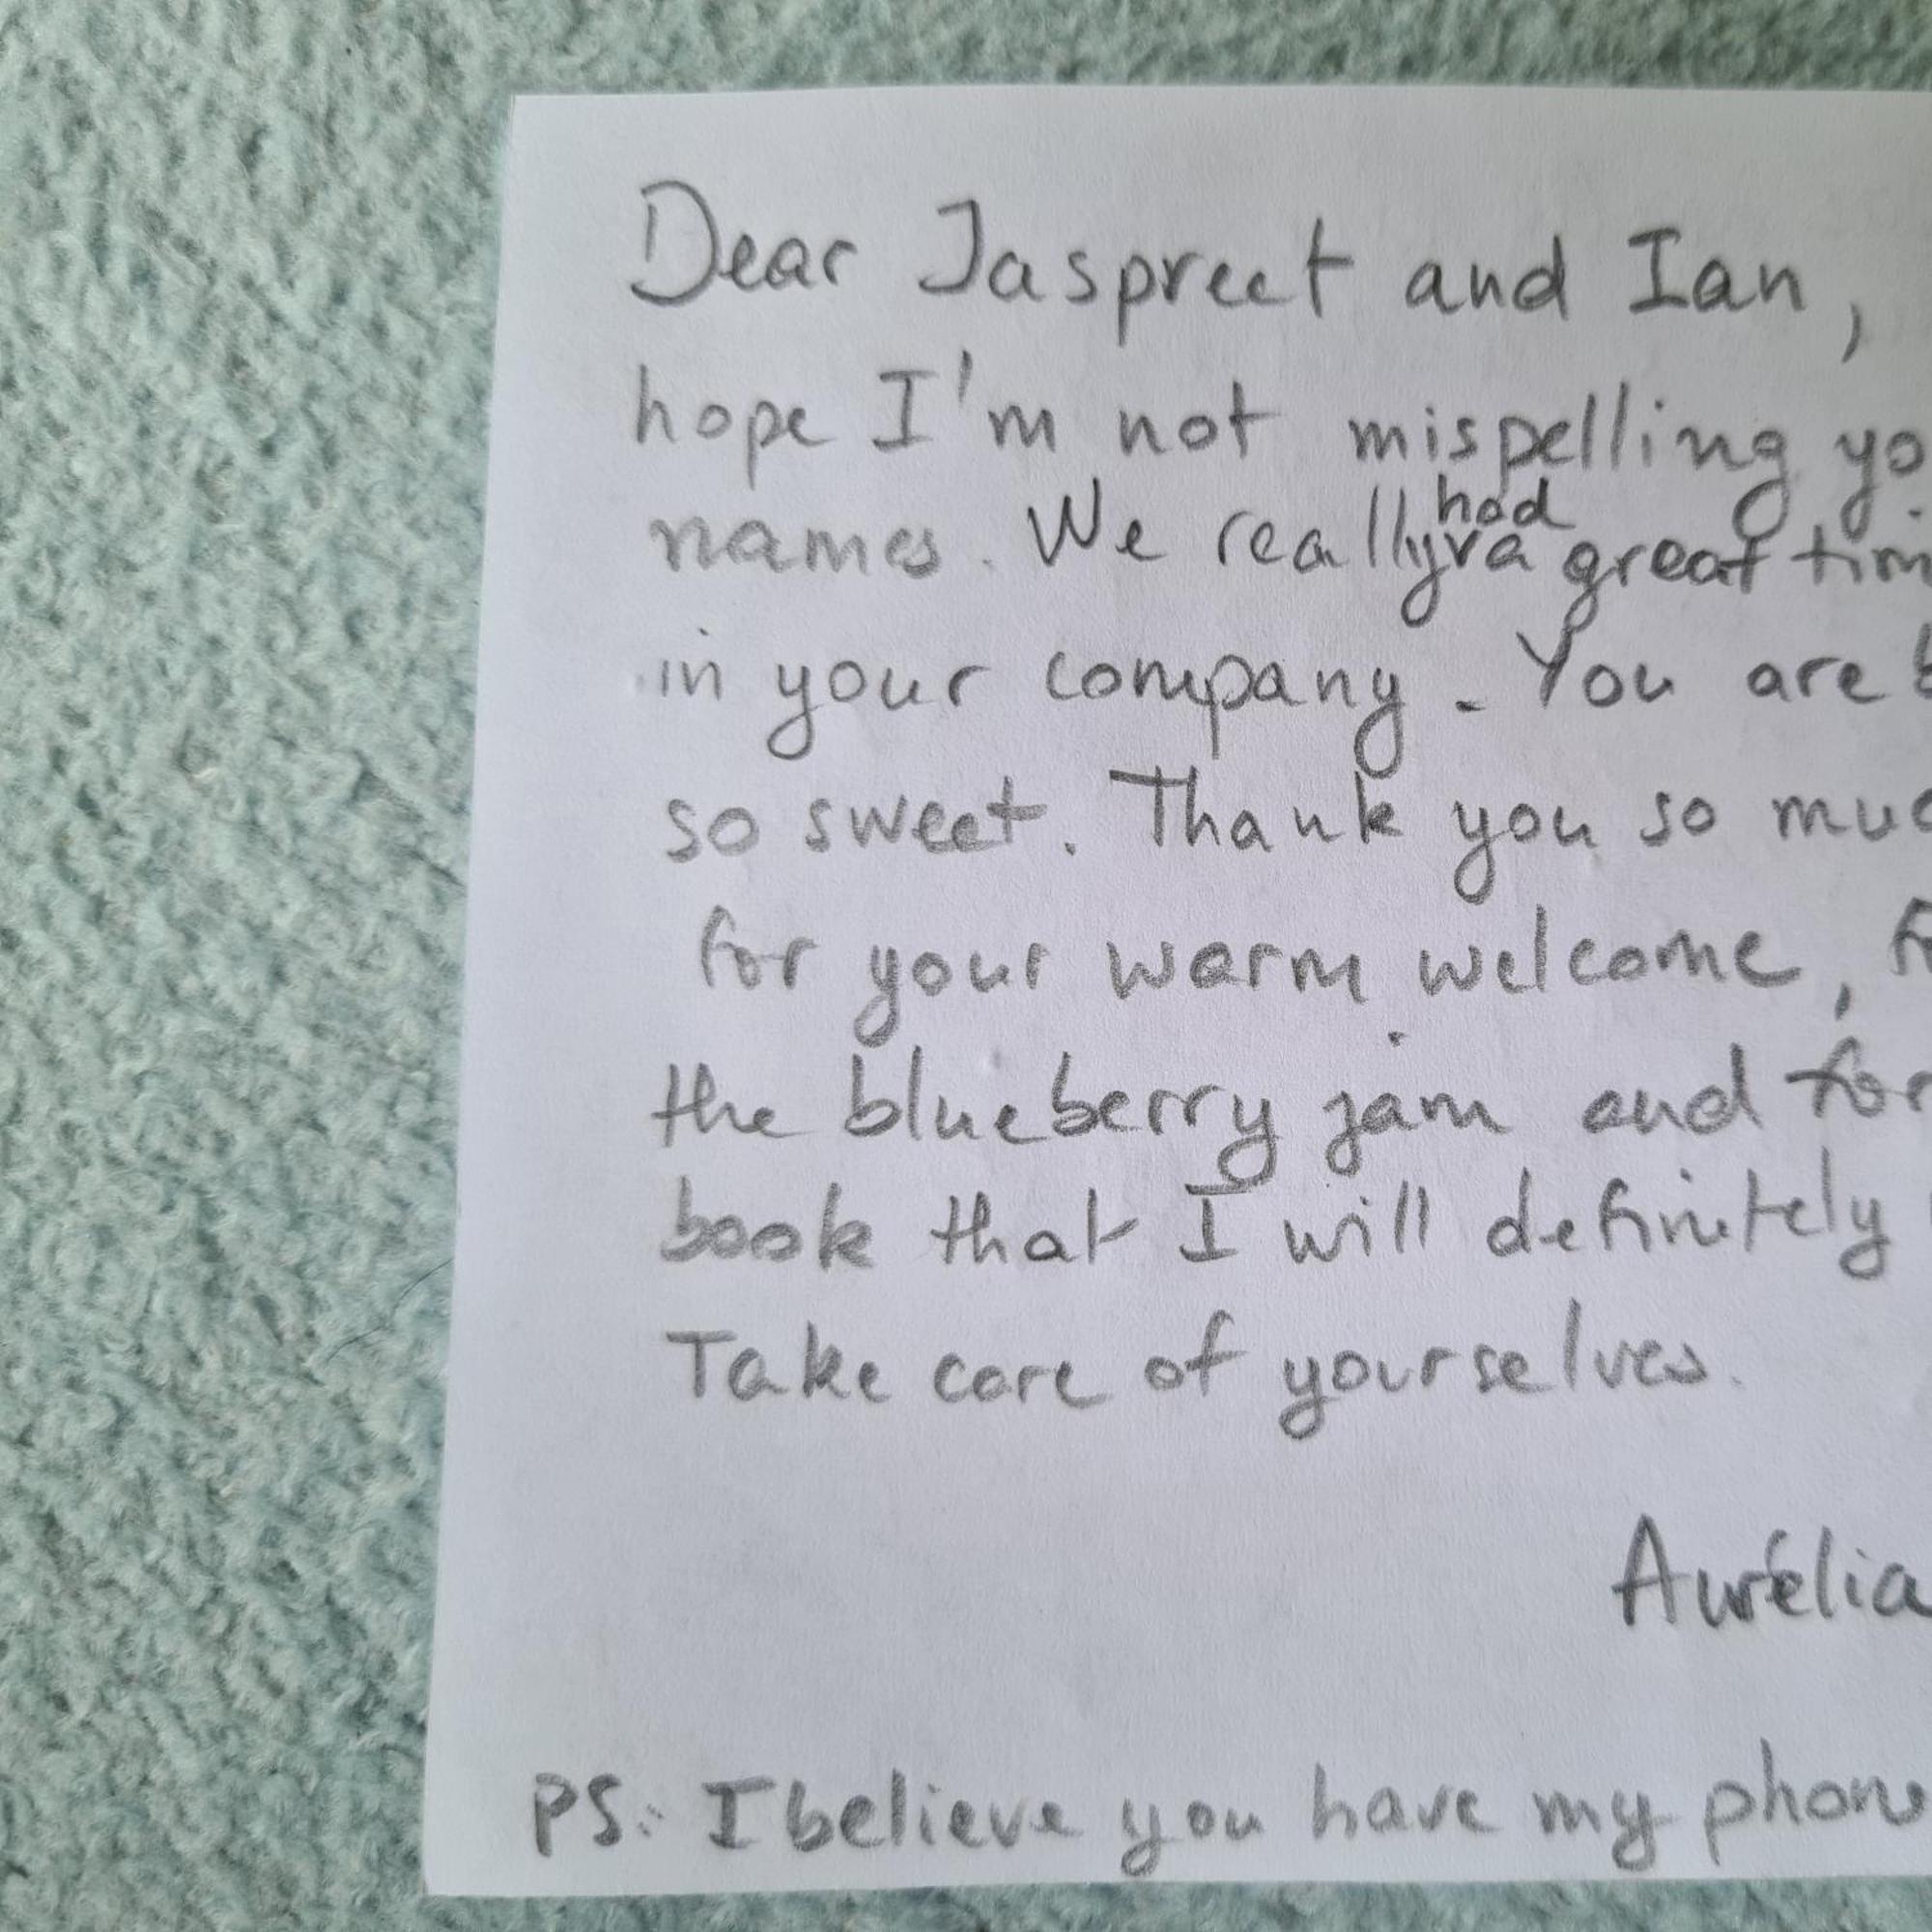 Dear Jaspreet and Ian,
hope I'm not mispelling yo
names. We really had a great tim
in your company. You are b
so sweet. Thank you so muc
for your warm welcome, f
the blueberry jam and for
book that I will definitely
Take care of yourselves.
Aurélia
PS: I believe you have my phone